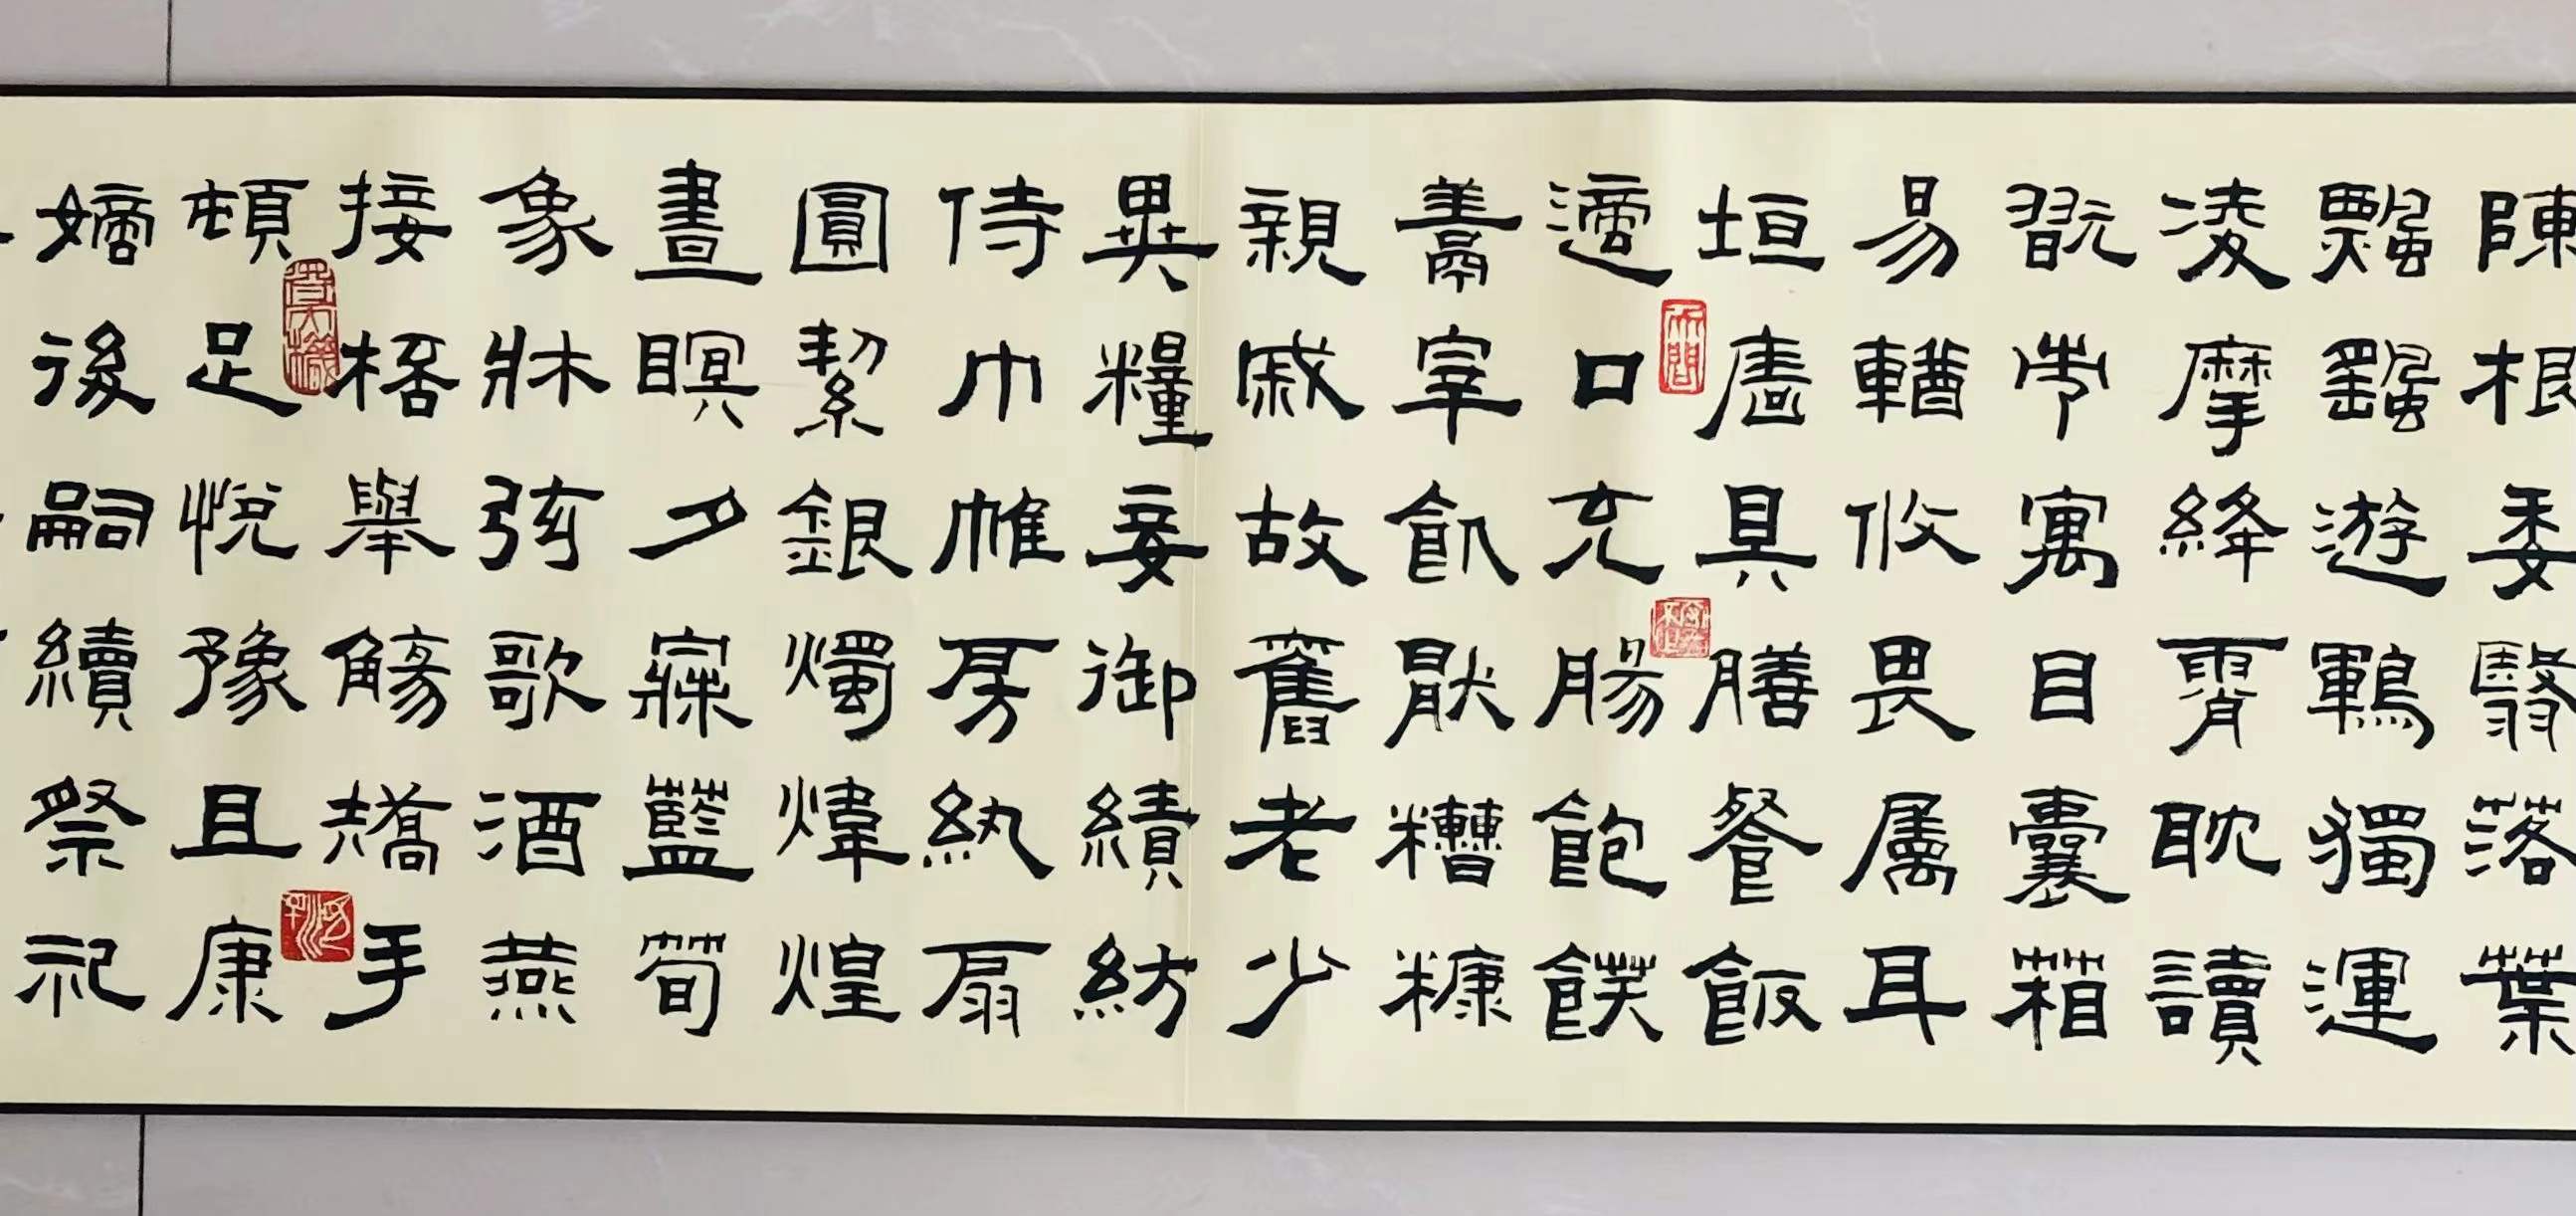 陳根委翳落葉
飄颻遊鵾獨運
凌摩絳霄耽讀
翫市寓目囊箱
易輶攸畏屬耳
垣牆具膳餐飯
適口充腸飽飫
烹宰飢厭糟糠
親戚故舊老少
異糧妾御績紡
侍巾帷房紈扇
圓絜銀燭煒煌
晝瞑夕寐藍筍
象牀弦歌酒燕
接桮舉觴矯手
頓足悅豫且康
嫡後嗣續祭祀